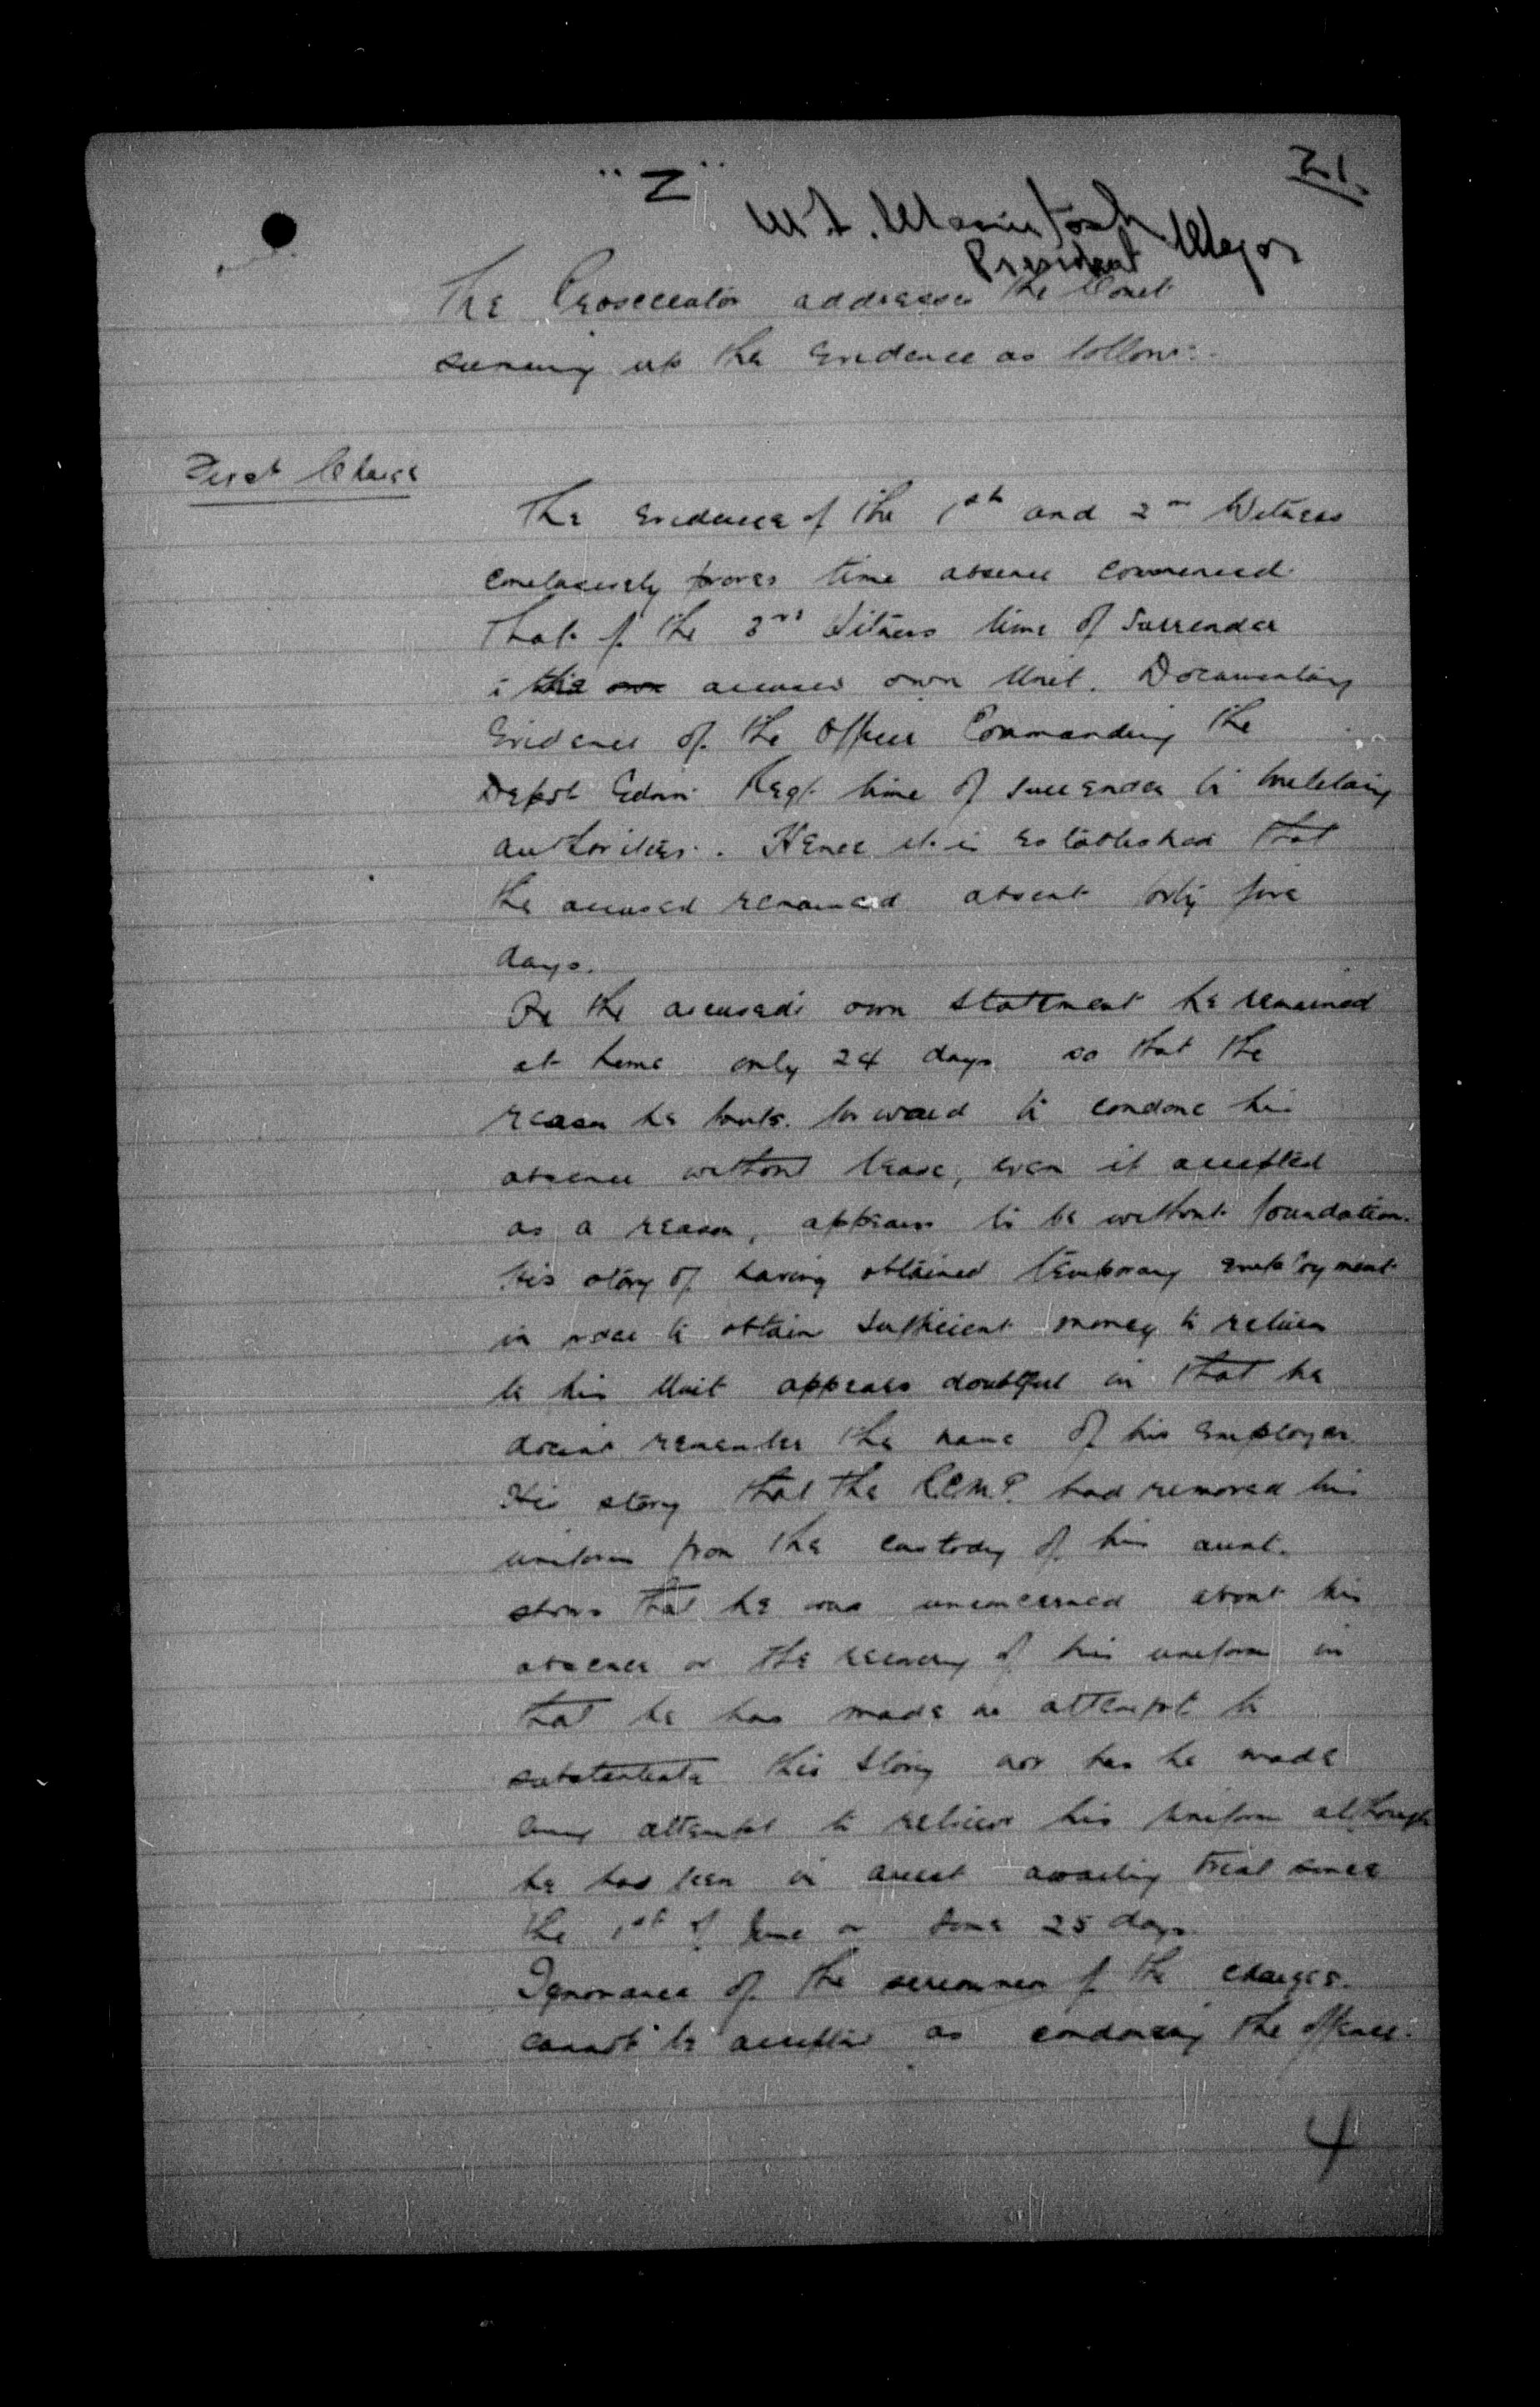 "Z"
21.
W. L. Macintosh Major
President
The Prosecutor addresses the Court
suming up the Evidence as follows:-
First Charge
The evidence of the 1st and 2nd Witness
conclusively proves time absence commenced.
That of the 3rd Witness time of surrender
to the own accused own Unit. Documentary
Evidence of the Officer Commanding the
Depot Edmn Regt time of surrender to military
authorities. Hence it is established that
the accused remained absent forty five
days.
On the accused's own statement he remained
at home only 24 days so that the
reason he puts forward to condone his
absence without leave, even if accepted
as a reason, appears to be without foundation.
His story of having obtained temporary employment
in order to obtain sufficient money to return
to his Unit appears doubtful in that he
doesnt remember the name of his employer.
His story that the R.C.M.P. had removed his
uniform from the custody of his aunt.
shows that he was unconcerned about his
absence or the recovery of his uniform in
that he has made no attempt to
substantiate this story nor has he made
any attempt to retrieve his uniform although
he has been in arrest awaiting trial since
the 1st of June or some 25 days.
Ignorance of the seriousness of the charges.
cannot be accepted as condoning the offence.
4